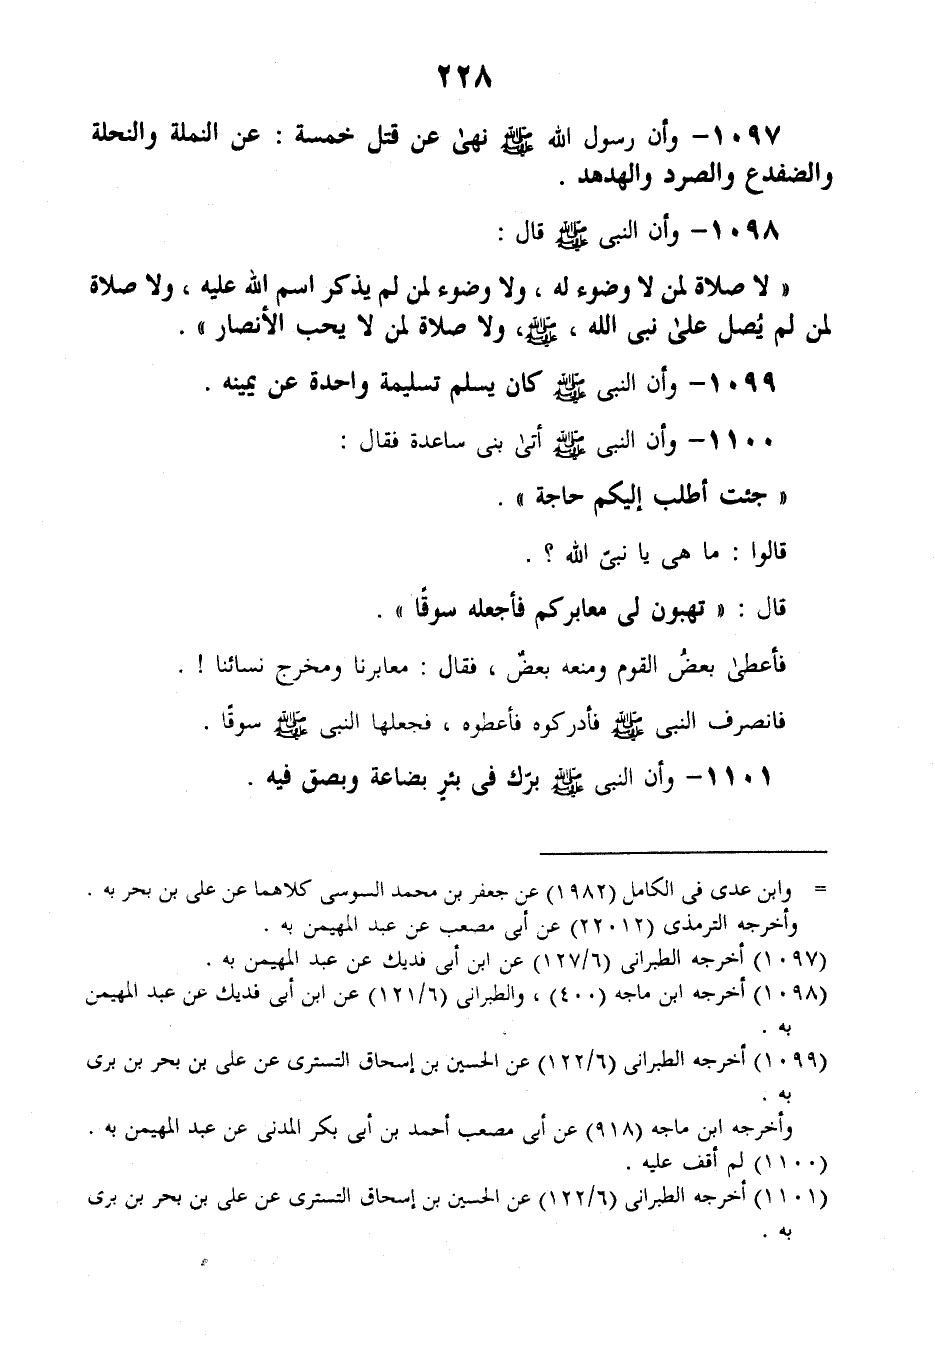 ٢٢٨
١٠٩٧– وأن رسول الله ﷺ نهىٰ عن قتل خمسة : عن النملة والنحلة
والضفدع والصرد والهدهد .
١٠٩٨– وأن النبى ﷺ قال :
« لا صلاة لمن لا وضوء له ، ولا وضوء لمن لم يذكر اسم الله عليه ، ولا صلاة
لمن لم يُصل علىٰ نبى الله ، ﷺ، ولا صلاة لمن لا يحب الأنصار » .
١٠٩٩– وأن النبى ﷺ كان يسلم تسليمة واحدة عن يمينه .
١١٠٠– وأن النبى ﷺ أتىٰ بنى ساعدة فقال :
« جئت أطلب إليكم حاجة » .
قالوا : ما هى يا نبىّ الله ؟ .
قال : « تهبون لى معابركم فأجعله سوقًا » .
فأعطىٰ بعضُ القوم ومنعه بعضٌ ، فقال : معابرنا ومخرج نسائنا ! .
فانصرف النبى ﷺ فأدركوه فأعطوه ، فجعلها النبى ﷺ سوقًا .
١١٠١– وأن النبى ﷺ برّك فى بئرٍ بضاعة وبصق فيه .
= وابن عدى فى الكامل (١٩٨٢) عن جعفر بن محمد السوسى كلاهما عن على بن بحر به .
وأخرجه الترمذى (٢٢٠١٢) عن أبى مصعب عن عبد المهيمن به .
(١٠٩٧) أخرجه الطبرانى (١٢٧/٦) عن ابن أبى فديك عن عبد المهيمن به .
(١٠٩٨) أخرجه ابن ماجه (٤٠٠) ، والطبرانى (١٢١/٦) عن ابن أبى فديك عن عبد المهيمن
به .
(١٠٩٩) أخرجه الطبرانى (١٢٢/٦) عن الحسين بن إسحاق التسترى عن على بن بحر بن برى
به .
وأخرجه ابن ماجه (٩١٨) عن أبى مصعب أحمد بن أبى بكر المدنى عن عبد المهيمن به .
(١١٠٠) لم أقف عليه .
(١١٠١) أخرجه الطبرانى (١٢٢/٦) عن الحسين بن إسحاق التسترى عن على بن بحر بن برى
به .